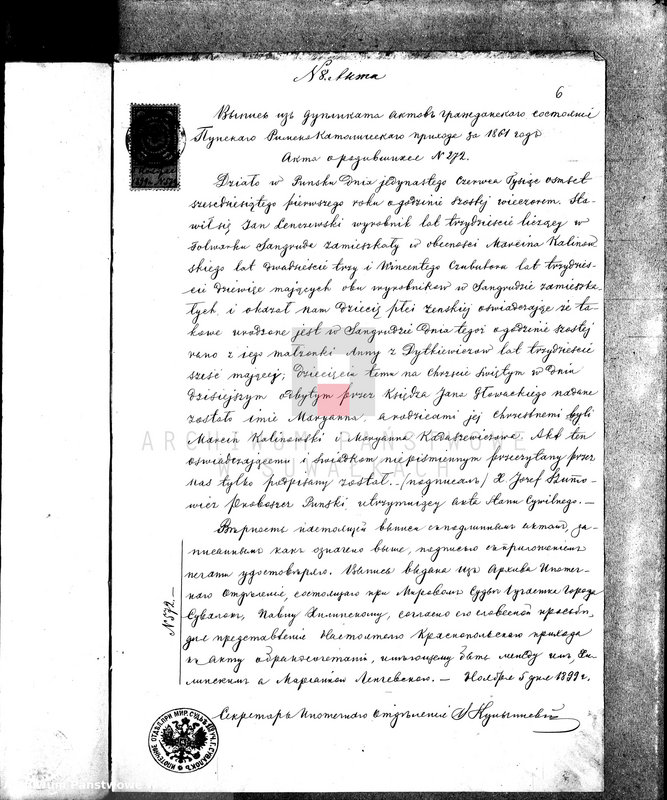 N 8. акта
6
Выпись изъ дупликата актовъ гражданскаго состоянія
Пунскаго Римско Католическаго прихода за 1861 годъ
Акта о родившихся N 272.
Działo w Puńsku dnia jedynastego Czerwca tysiąc osmset
sześdziesiątego pierwszego roku o godzinie szostej wieczorem. Sta-
wił się Jan Lenczewski wyrobnik lat trzydzieście liczący w
Folwarku Sangruda zamieszkały w obecności Marcina Kalinow-
skiego lat dwadzieście trzy i Wincentego Czubutora lat trzydzieś-
cie dziewięć mających obu wyrobników w Sangrudzie zamieszka-
łych, i okazał nam dziecię płci żenskiej oświadczając że ta-
kowe urodzone jest w Sangrudzie dnia tegoż o godzinie szostej
rano z jego małżonki Anny z Dytkiewiczow lat trzydzieście
sześć mającej; dziecięciu temu na Chrzcie Świętym w dniu
dzisiejszym odbytym przez Księdza Jana Głowackiego nadane
zostało imie Maryanna, a rodzicami jej Chrzestnemi byli
Marcin Kalinowski i Maryanna Kadaszewiczowa. Akt ten
oświadczającemu i świadkom niepiśmiennym przeczytany przez
nas tylko podpisany został. – /подписалъ/ X. Jozef
Proboszcz Punski utrzymujący akta Stanu Cywilnego. –
Вѣрность настоящей выписи съ подлиннымъ актомъ, за-
писаннымъ какъ означено выше, подписью съ приложеніемъ
печати удостовѣряю. Выпись выдана изъ Архива Ипотеч-
наго Отдѣленія, состоящаго при Мировомъ Судьѣ I участка Города
Сувалокъ, Павлу Хилинскому, согласно его словесной просьбы,
для представленія Настоятелю Краснопольскаго прихода
къ акту о бракосочетаніи, имѣющему быть между имъ, Хи-
линскимъ а Маріанною Ленчевскою. – Ноября 5 дня 1899 г.
N 572. –
Секретарь Ипотечнаго Отдѣленія
ARCHIWUM PAŃSTWOWE
W SUWAŁKACH